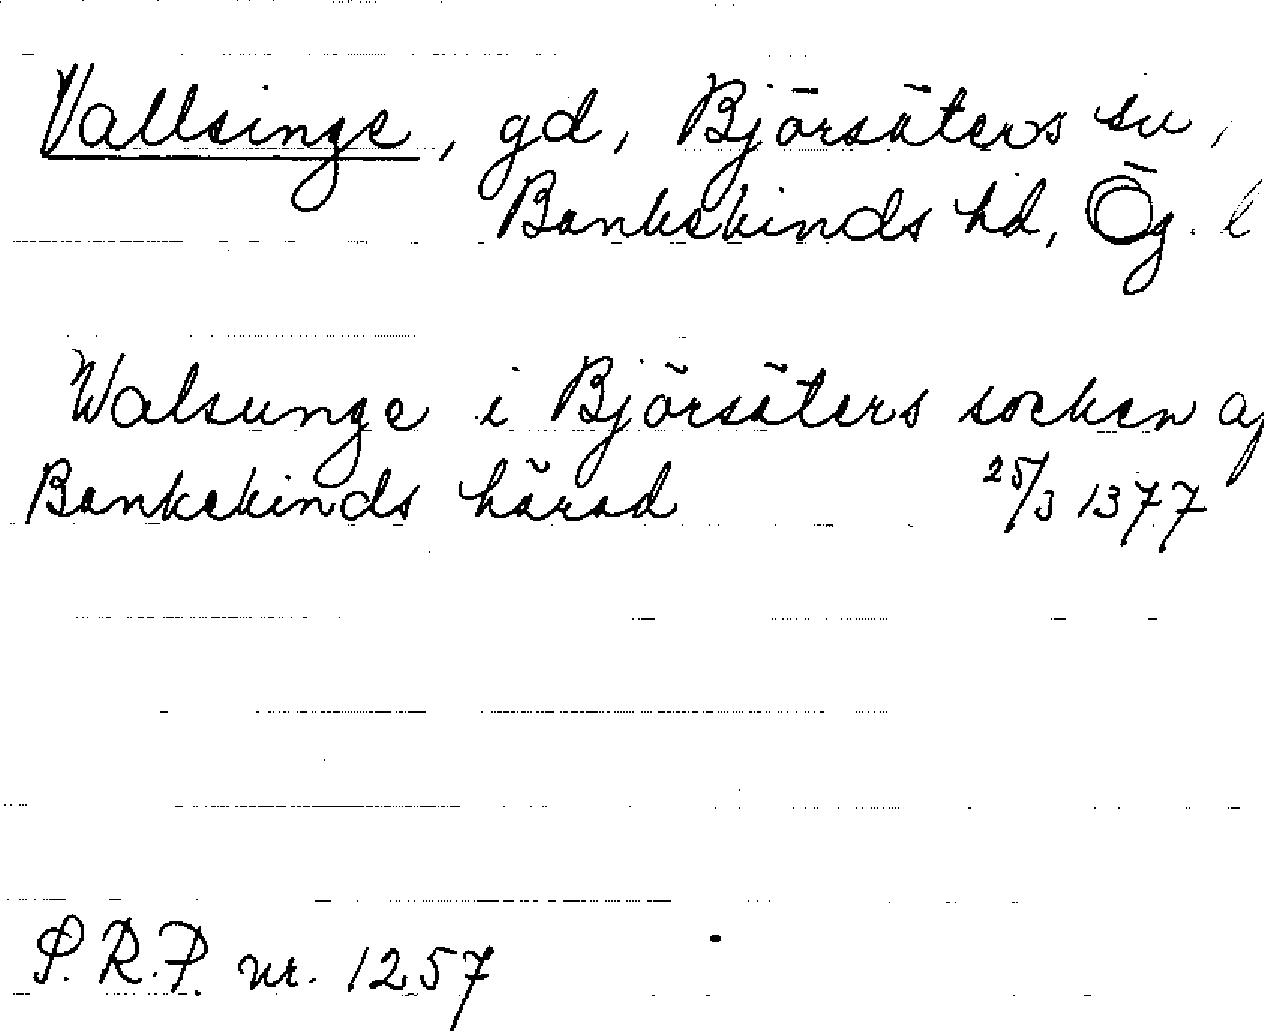 Vallsinge, gd, Björsäters sn,
Bankekinds hd, Ög. l
Walsunge i Björsäters socken af
Bankekinds härad 25/3 1377
S.R.P. nr. 1257